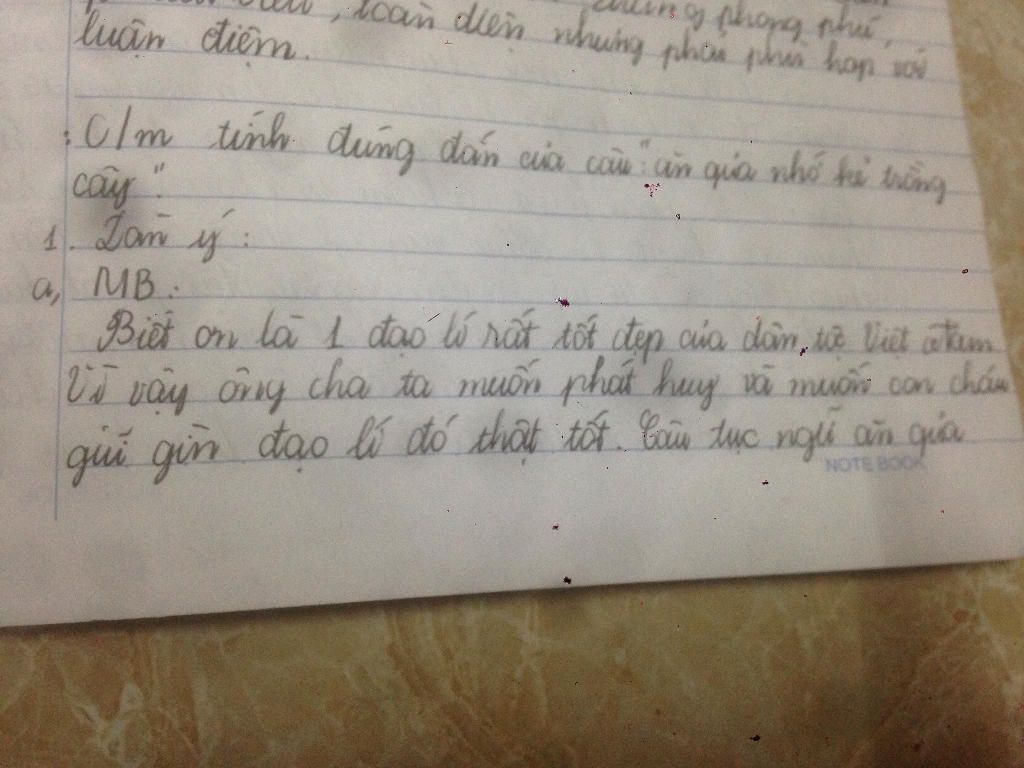 tiêu biểu, toàn diện chứng phong phú,
luận điệm. nhưng phải phù hợp với
: C/m tính đúng đắn của câu: "ăn quả nhớ kẻ trồng
cây".
1. Dàn ý:
a, MB:
Biết ơn là 1 đạo lí rất tốt đẹp của dân tộc Việt Nam
Vì vậy ông cha ta muốn phát huy và muốn con cháu
giữ gìn đạo lí đó thật tốt. Câu tục ngữ ăn quả
NOTE BOOK